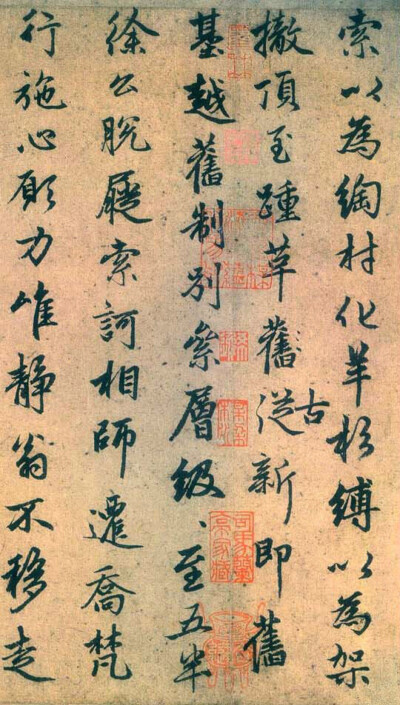 索以為綯村化羊杉縛以為架
撤頂至踵革舊從新即舊
古
基越舊制別絫層級、至五半
徐公脫屣索訶相師遷喬梵
行施心願力唯靜翁不移走
司馬蘭亭家藏